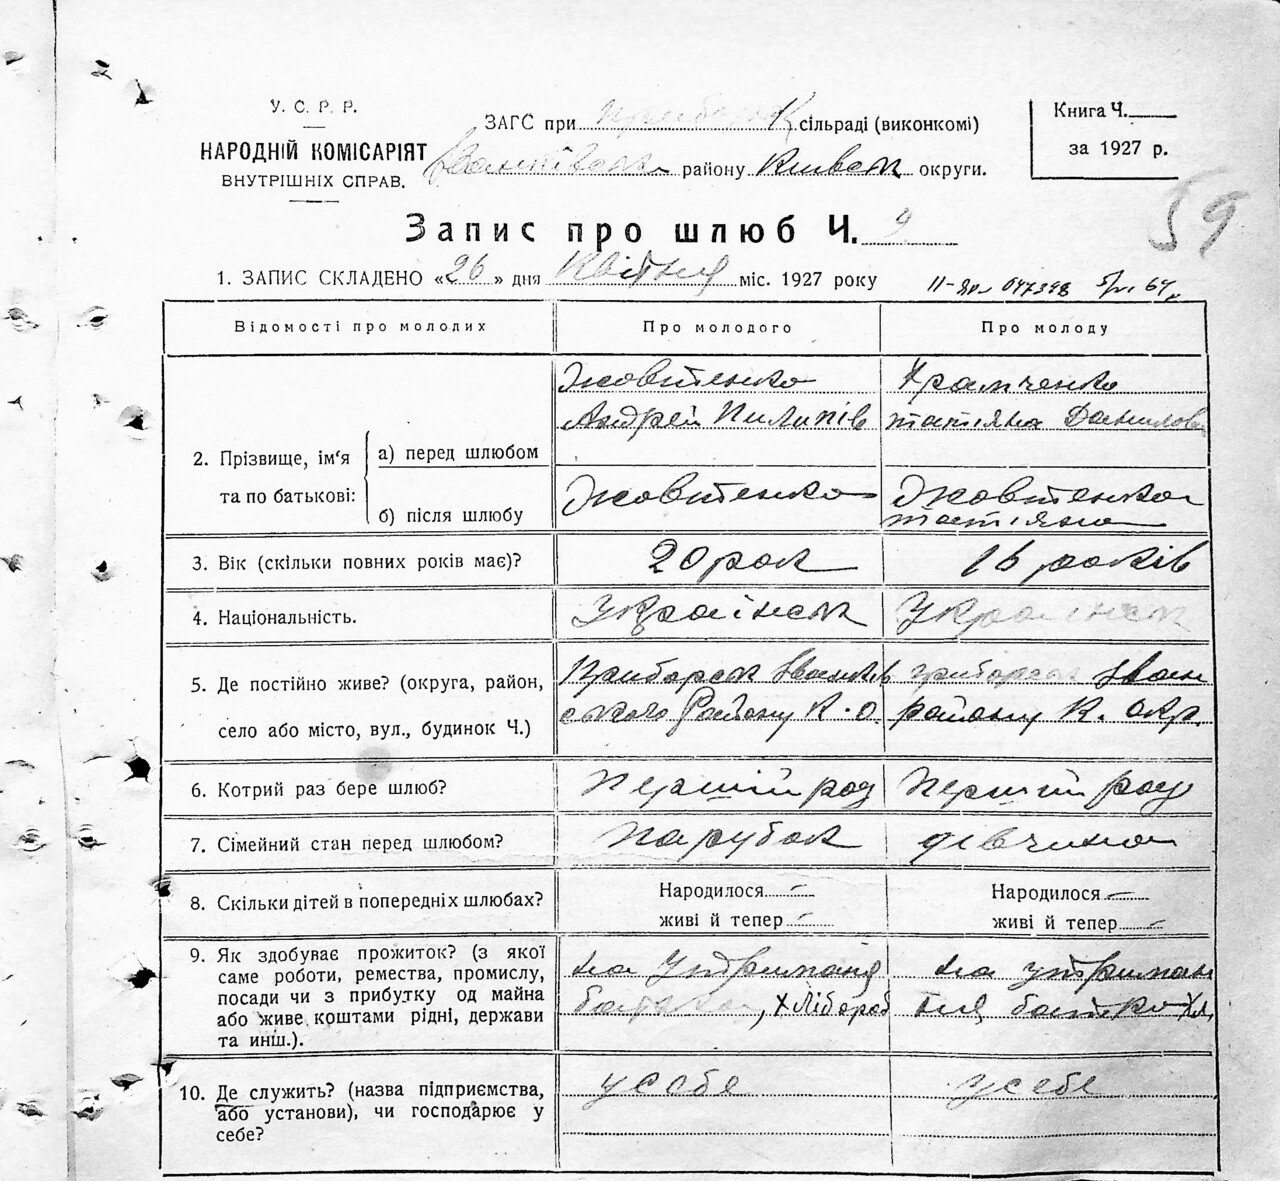 У. С. Р. Р.
НАРОДНІЙ КОМІСАРІЯТ
ВНУТРІШНІХ СПРАВ.
ЗАГС при сільраді (виконкомі)
району Київськ округи.
Книга Ч.
за 1927 р.
59
Запис про шлюб Ч. 9
1. ЗАПИС СКЛАДЕНО «26» дня Квітня міс. 1927 року
Відомості про молодих
Про молодого
Про молоду
2. Прізвище, ім'я та по батькові:
а) перед шлюбом
Жовтенко
Андрей Пилипів
Храпченко
татіяна Данилова
б) після шлюбу
Жовтенко
Жовтенко
татіяна
3. Вік (скільки повних років має)?
20 рок
16 років
4. Національність.
Українськ
Українськ
5. Де постійно живе? (округа, район,
село або місто, вул., будинок Ч.)
Приборськ Іванків
ського Району К. О.
приборськ Іван
району К. окр.
6. Котрий раз бере шлюб?
Перший раз
Перший раз
7. Сімейний стан перед шлюбом?
Парубок
дівчина
8. Скільки дітей в попередніх шлюбах?
Народилося -
живі й тепер -
Народилося -
живі й тепер -
9. Як здобуває прожиток? (з якої
саме роботи, ремества, промислу,
посади чи з прибутку од майна
або живе коштами рідні, держави
та инш.).
на утриманя
батька, хлібороб
на утриман
ня батька хл.
10. Де служить? (назва підприємства,
або установи), чи господарює у
себе?
у себе
у себе